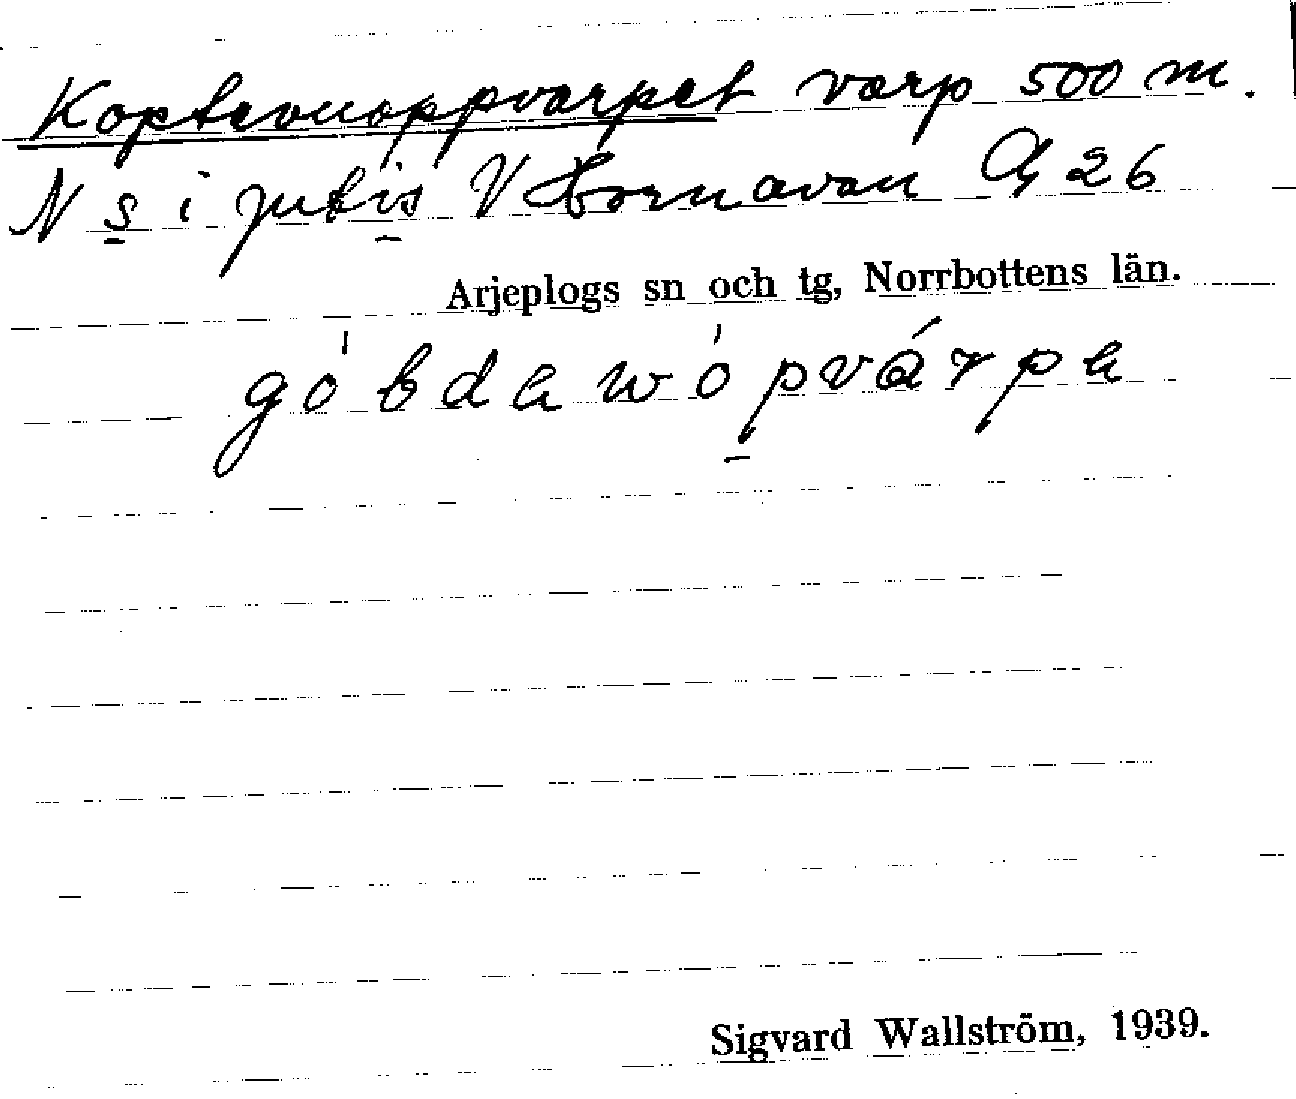 Koptevuoppvarpet varp 500 m.
N s i jutis V Hornavan Aj 26
Arjeplogs sn och tg, Norrbottens län.
gó b d a w ó p v á r p a
Sigvard Wallström, 1939.